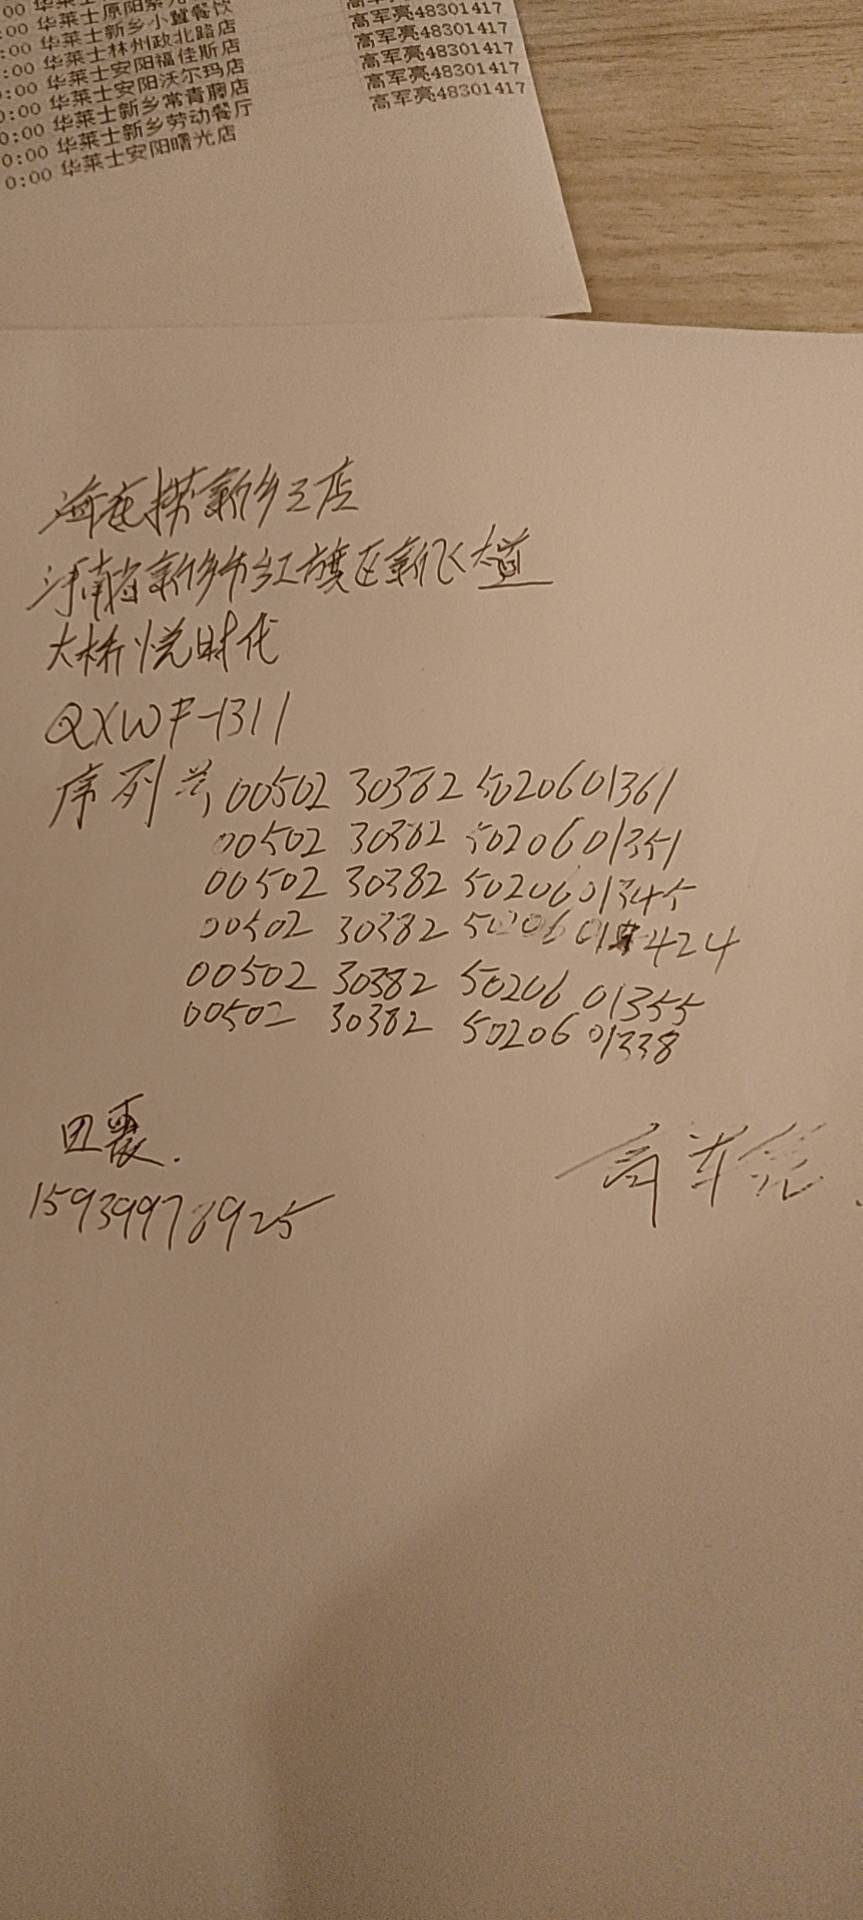 华莱士原阳
华莱士新乡小冀餐饮
:00 华莱士林州政北路店 高军亮48301417
:00 华莱士安阳福佳斯店 高军亮48301417
0:00 华莱士安阳沃尔玛店 高军亮48301417
0:00 华莱士新乡常青藤店 高军亮48301417
0:00 华莱士新乡劳动餐厅 高军亮48301417
0:00 华莱士安阳曙光店
海底捞新乡三店
河南省新乡市红旗区新飞大道
大桥悦时代
QXWF-1311
序列号,00502 30382 5020601361
00502 30382 5020601351
00502 30382 5020601345
00502 30382 5020601424
00502 30382 50206 01355
00502 30382 50206 01338
田霞.
高军亮